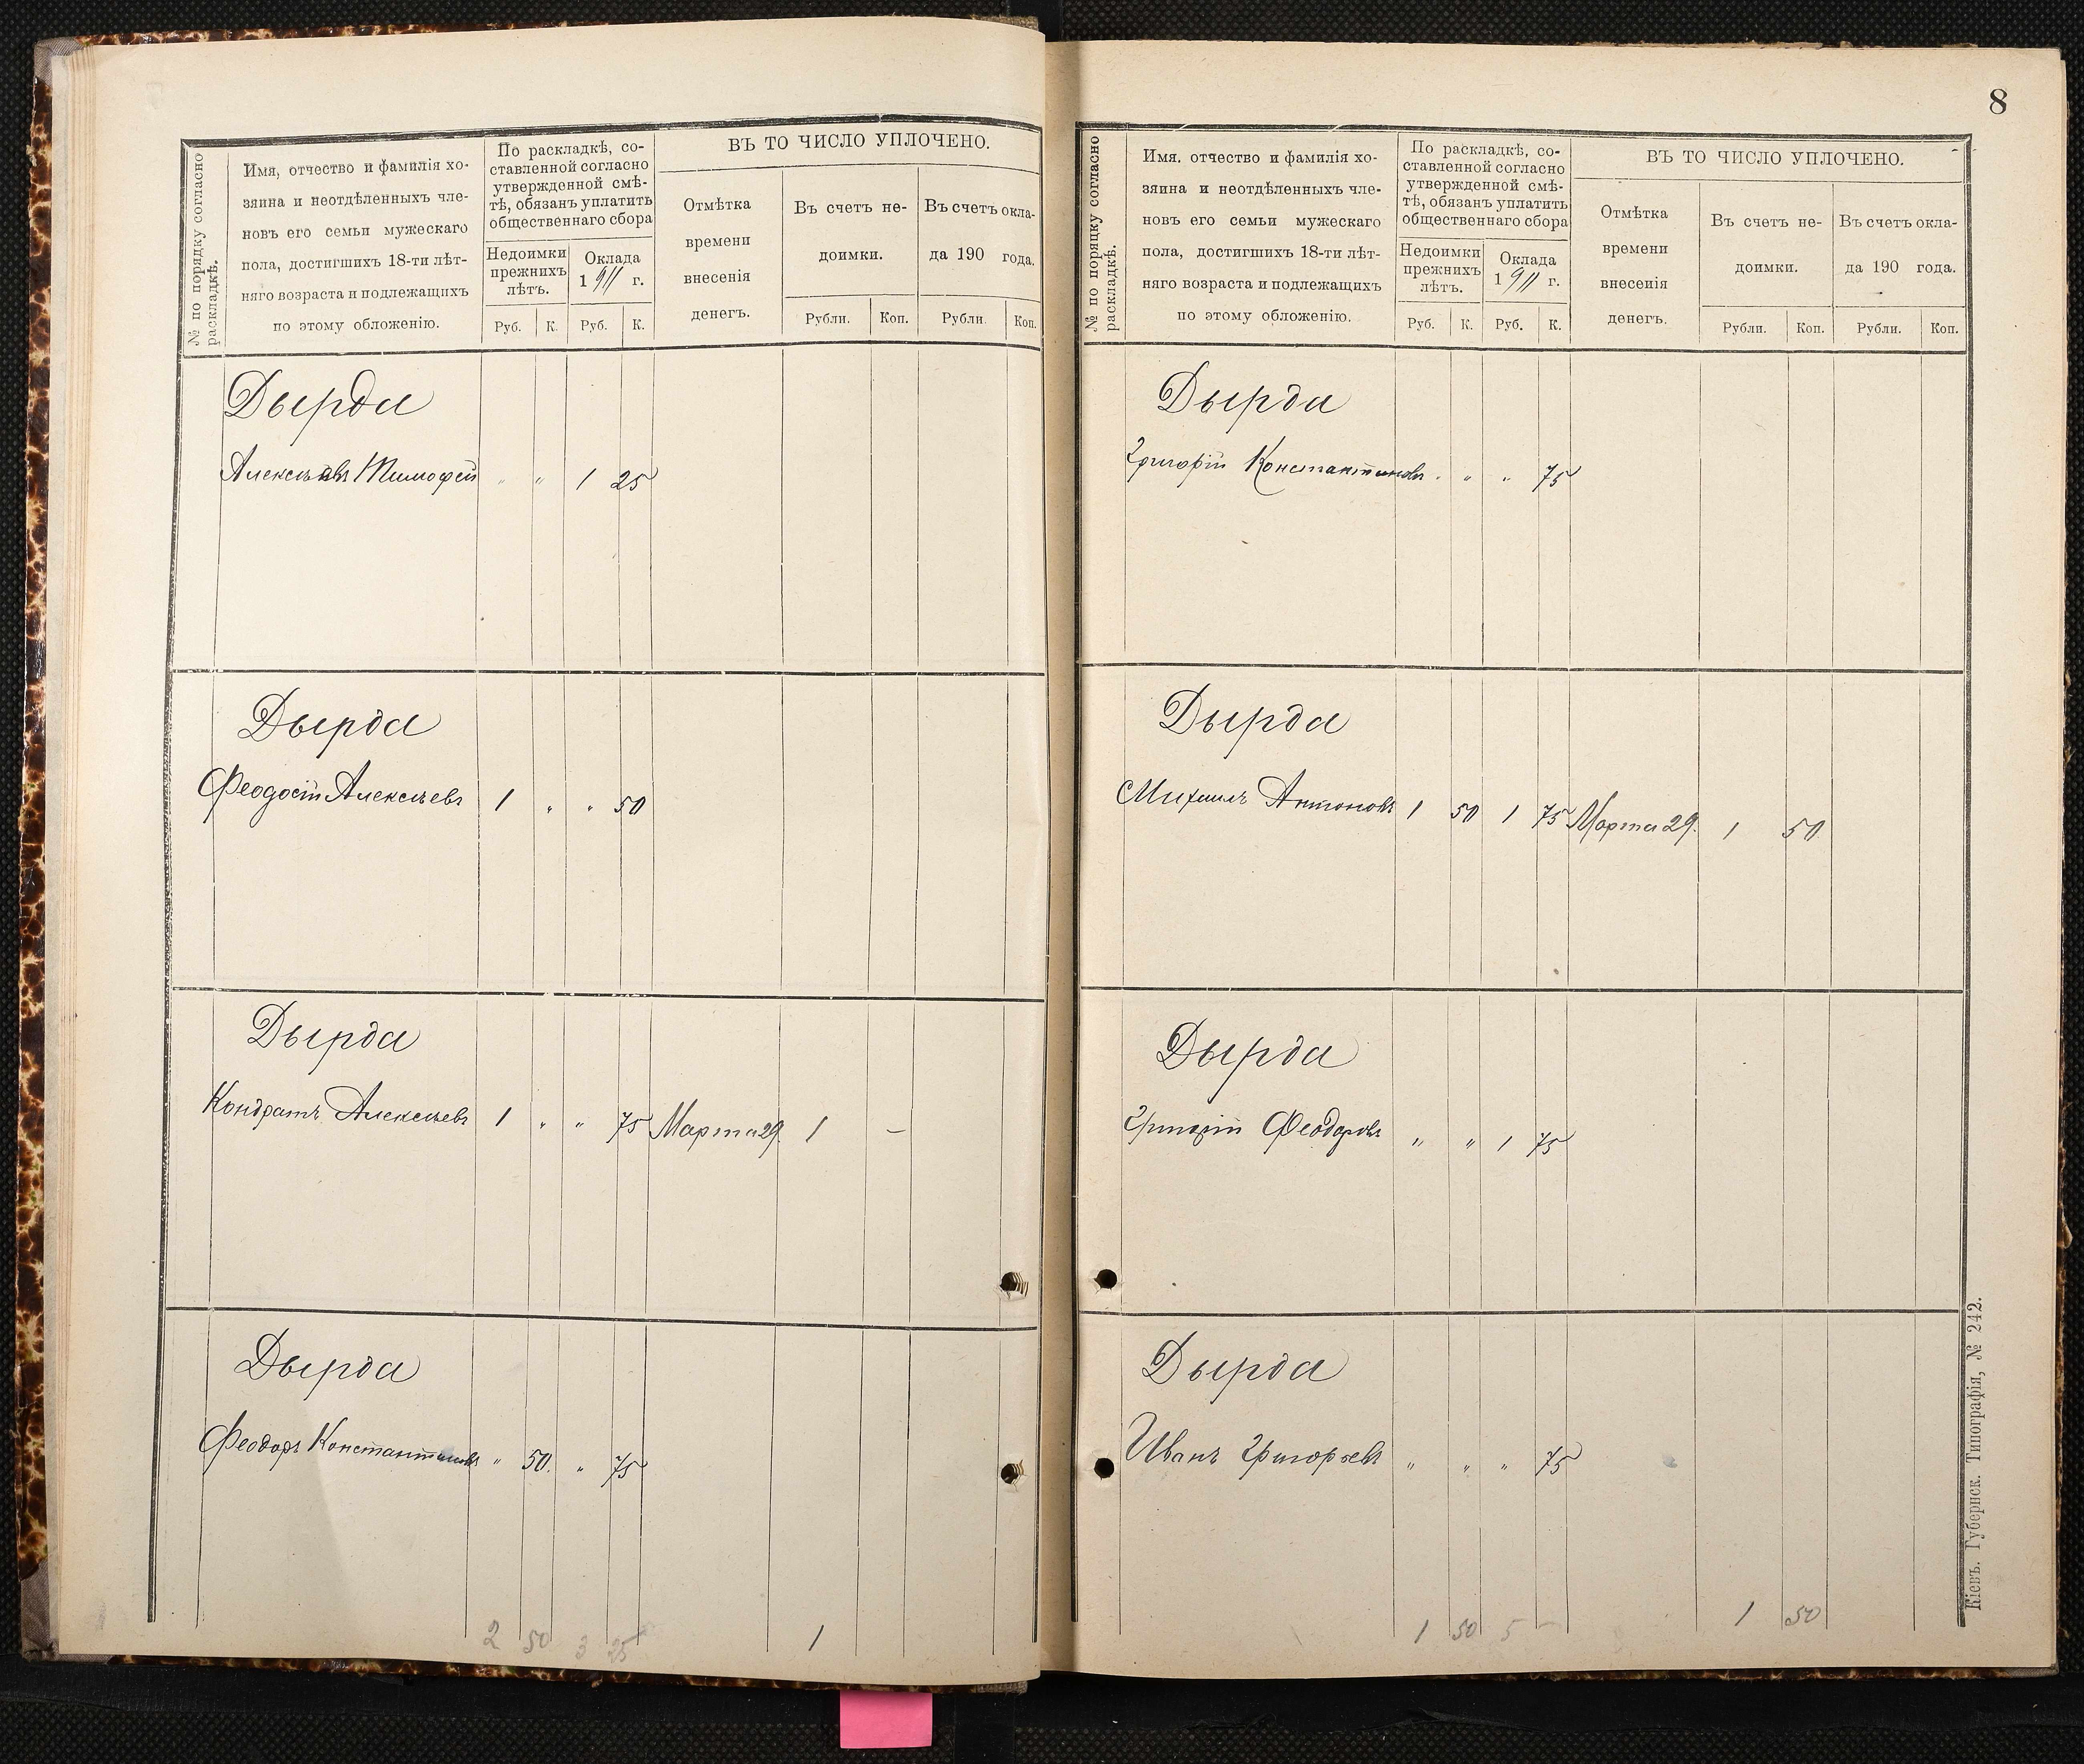 № по порядку согласно
раскладкѣ.
Имя, отчество и фамилія хо-
зяина и неотдѣленныхъ чле-
новъ его семьи мужескаго
пола, достигшихъ 18-ти лѣт-
няго возраста и подлежащихъ
по этому обложенію.
По раскладкѣ, со-
ставленной согласно
утвержденной смѣ-
тѣ, обязанъ уплатить
общественнаго сбора
Недоимки
прежнихъ
лѣтъ.
Оклада
1911 г.
Руб. К. Руб. К.
ВЪ ТО ЧИСЛО УПЛОЧЕНО.
Отмѣтка
времени
внесенія
денегъ.
Въ счетъ не-
доимки.
Въ счетъ окла-
да 190 года.
Рубли. Коп. Рубли. Коп.
Дырда
Алексѣевъ Тимофей " " 1 25
Дырда
Феодосій Алексѣевъ 1 " " 50
Дырда
Кондратъ Алексѣевъ 1 " " 75 Марта 29. 1 —
Дырда
Феодоръ Константиновъ " 50. " 75
2 50 3 25 1
8
№ по порядку согласно
раскладкѣ.
Имя. отчество и фамилія хо-
зяина и неотдѣленныхъ чле-
новъ его семьи мужескаго
пола, достигшихъ 18-ти лѣт-
няго возраста и подлежащихъ
по этому обложенію.
По раскладкѣ, со-
ставленной согласно
утвержденной смѣ-
тѣ, обязанъ уплатить
общественнаго сбора
Недоимки
прежнихъ
лѣтъ.
Оклада
1911 г.
Руб. К. Руб. К.
ВЪ ТО ЧИСЛО УПЛОЧЕНО.
Отмѣтка
времени
внесенія
денегъ.
Въ счетъ не-
доимки.
Въ счетъ окла-
да 190 года.
Рубли. Коп. Рубли. Коп.
Дырда
Григорій Константиновъ " " " 75
Дырда
Михаилъ Антоновъ 1 50 1 75 Марта 29. 1 50
Дырда
Григорій Феодоровъ " " 1 75
Дырда
Иванъ Григорьевъ " " " 75
1 50 5 — 1 50
Кіевъ. Губернск. Типографія, № 242.